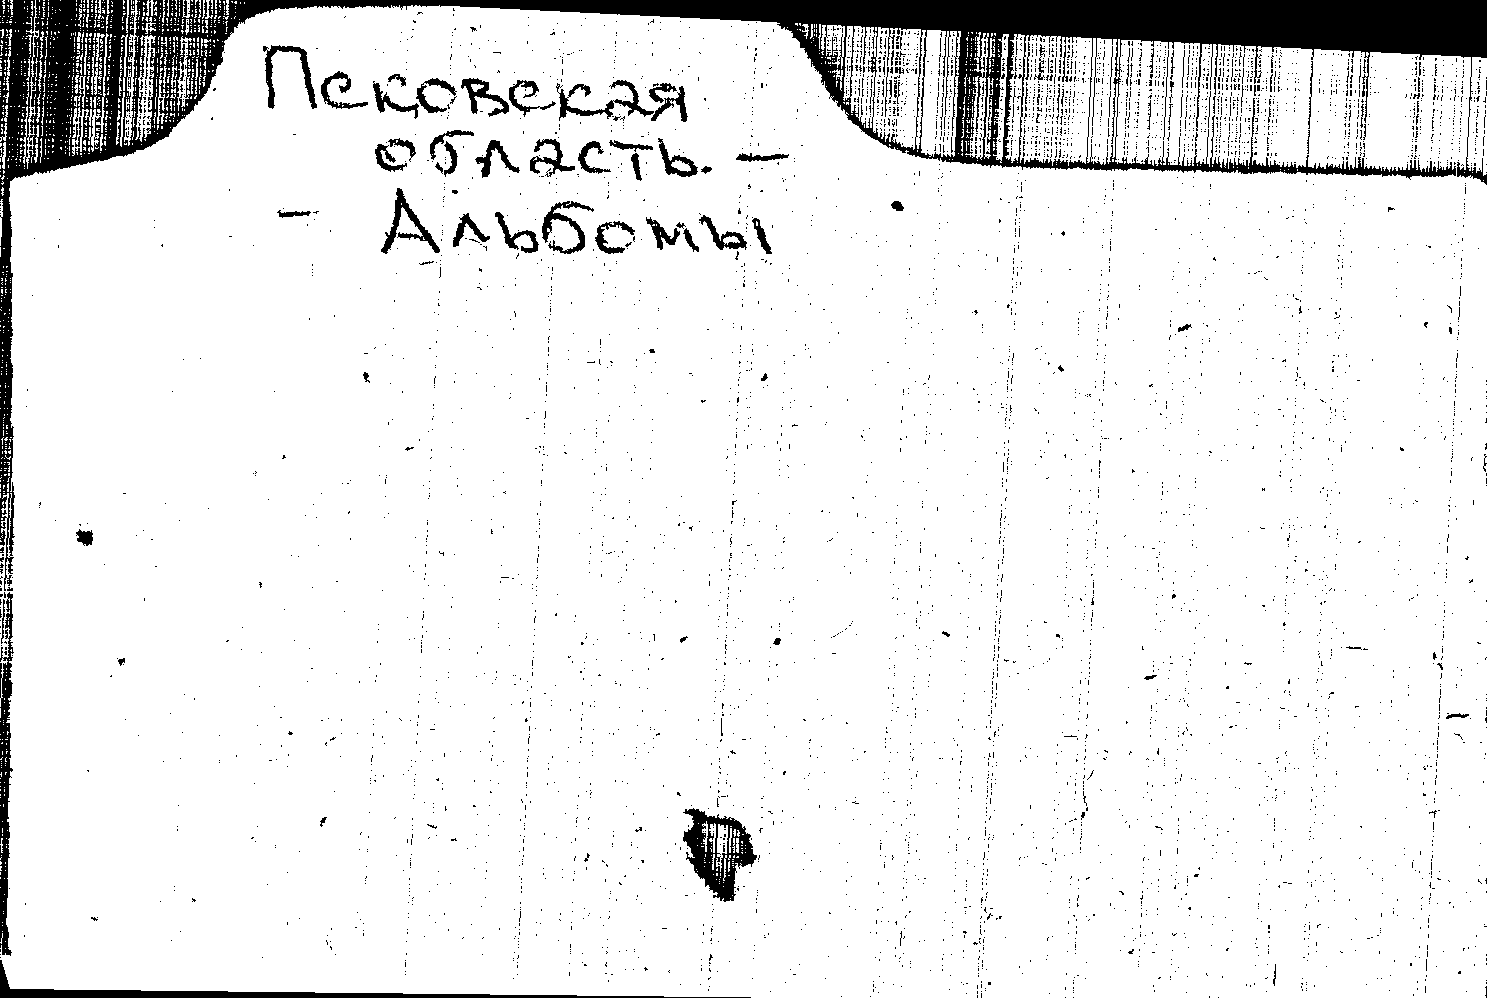 Псковская
область. —
— Альбомы